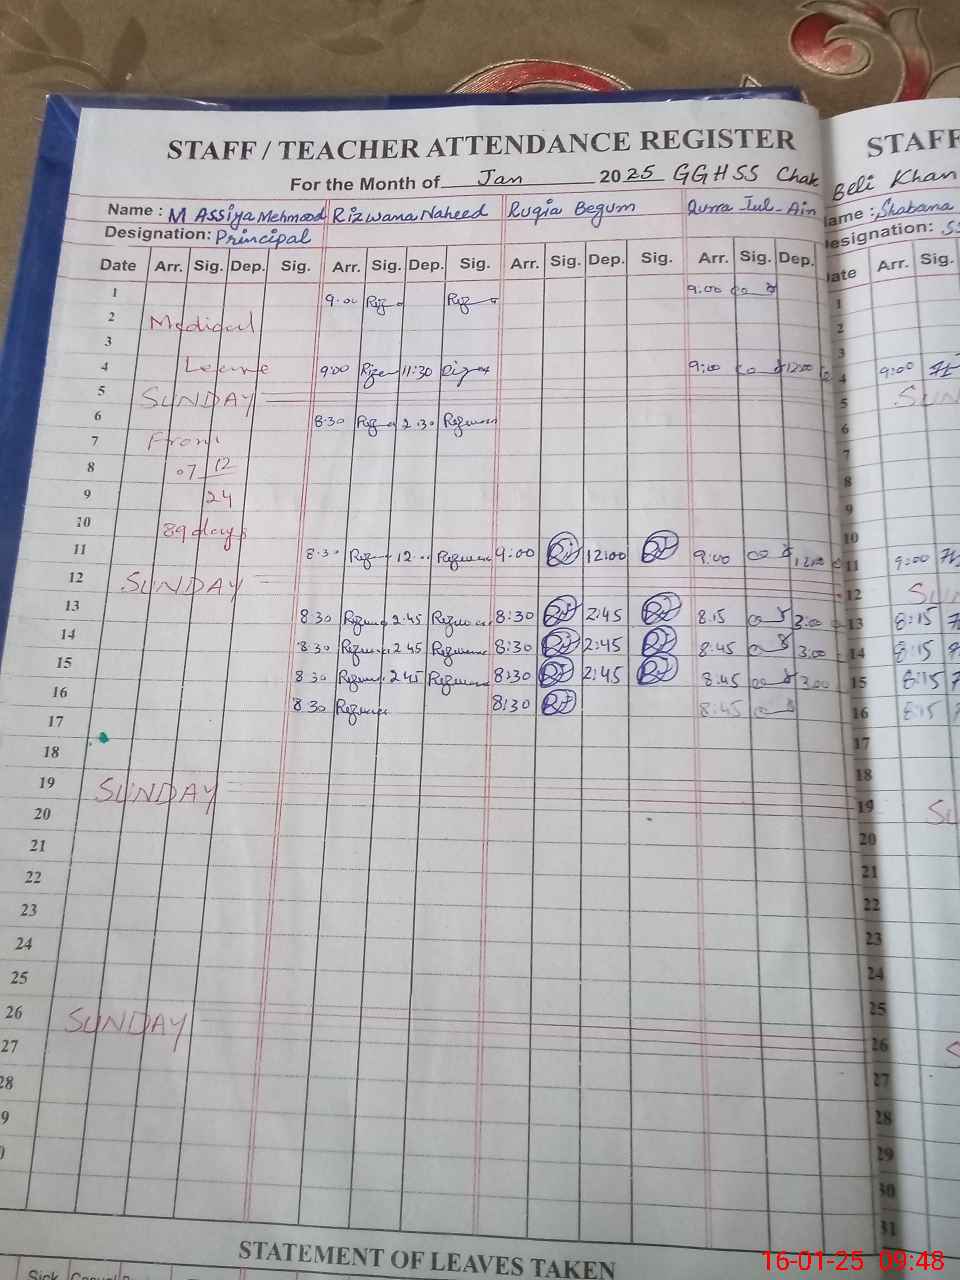 STAFF / TEACHER ATTENDANCE REGISTER STAFF
For the Month of Jan 2025 GGHSS Chak Beli Khan
Name : M Assiya Mehmood Rizwana Naheed Ruqia Begum Qurra Tul-Ain ame : Shabana
Designation: Principal esignation: SS
Date Arr. Sig. Dep. Sig. Arr. Sig. Dep. Sig. Arr. Sig. Dep. Sig. Arr. Sig. Dep. ate Arr. Sig.
1 9:00 Riz Riz 9:00 1
2 Medical 2
3 3
4 Leave 9:00 Rizw 11:30 9:00 12:00 4 9:00
5 SUNDAY 5 SUN
6 8:30 2:30 Rizwana 6
7 From 7
8 07 12 8
9 24 9
10 89 days 10
11 8:30 12 Rizwana 9:00 12:00 9:00 12:00 11 9:00
12 SUNDAY 12 SU
13 8:30 Rizwana 2:45 Rizwana 8:30 2:45 8:15 3:00 13 8:15
14 8:30 Rizwana 2:45 Rizwana 8:30 2:45 8:45 3:00 14 8:15
15 8:30 Rizwana 2:45 Rizwana 8:30 2:45 8:45 3:00 15 8:15
16 8:30 Rizwana 8:30 8:45 16 8:15
17 17
18 18
19 SUNDAY 19 SU
20 20
21 21
22 22
23 23
24 24
25 25
26 SUNDAY 26 S
27 27
28 28
9 29
30
31
STATEMENT OF LEAVES TAKEN
Sick Casual
16-01-25 09:48